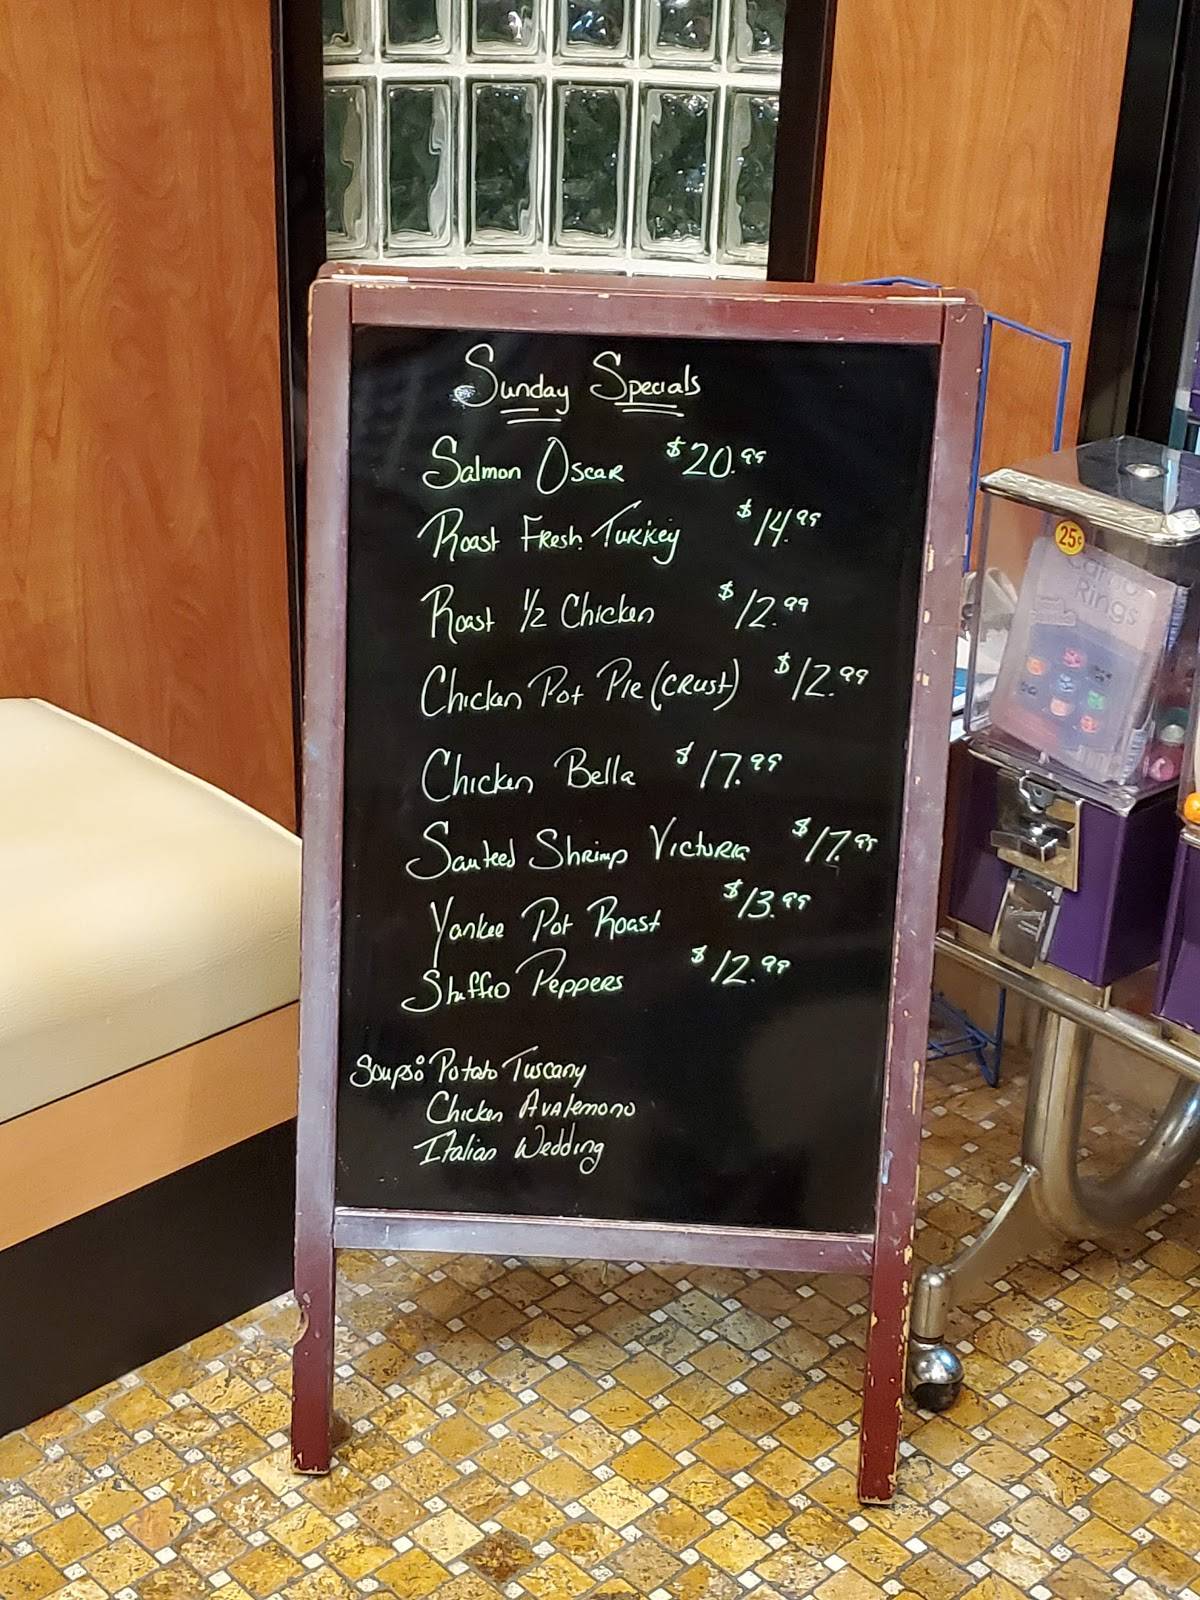 Sunday Specials
Salmon Oscar $20.99
Roast Fresh Turkey $14.99
Roast 1/2 Chicken $12.99
Chicken Pot Pie (CRUST) $12.99
Chicken Bella $17.99
Sauteed Shrimp Victoria $17.95
Yankee Pot Roast $13.99
Stuffed Peppers $12.99
Soups: Potato Tuscany
Chicken Avalemono
Italian Wedding
25¢
Rings